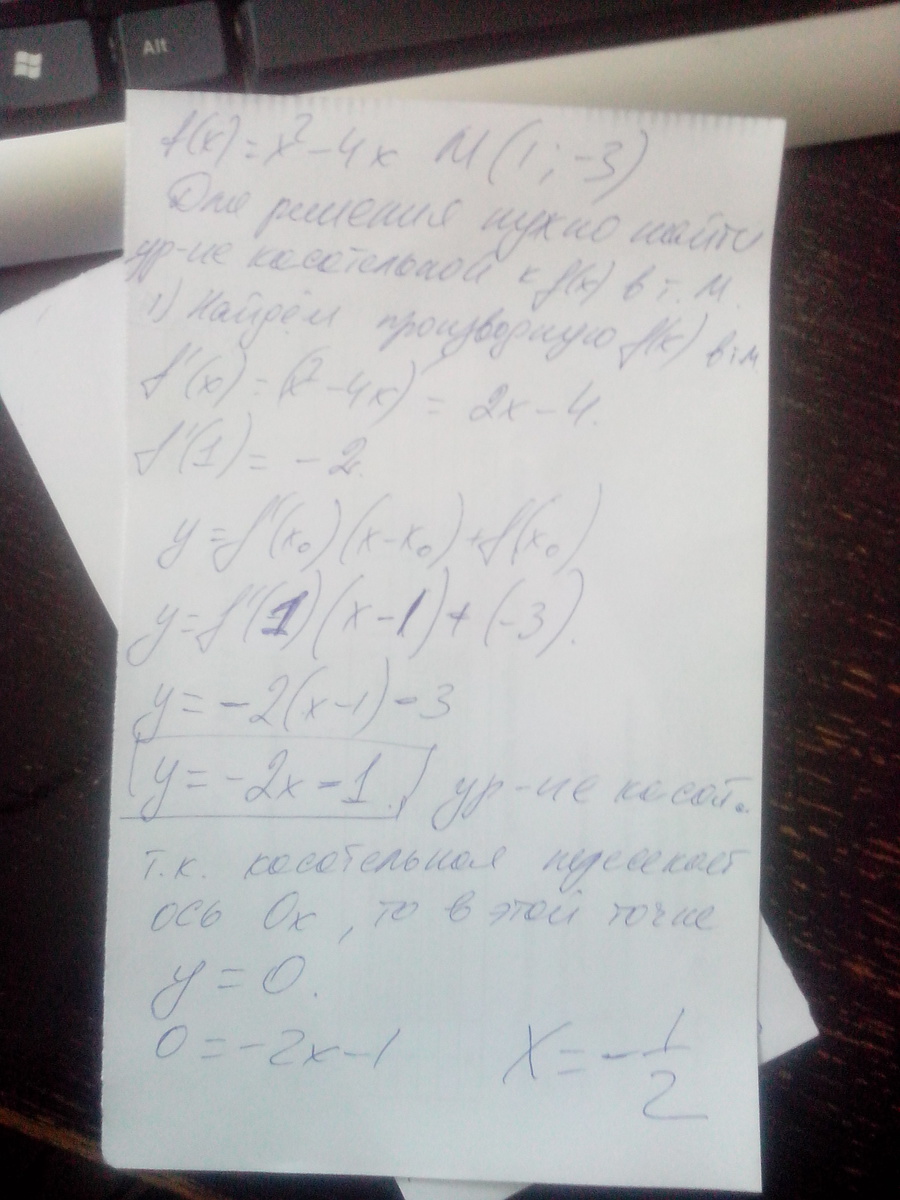 Alt
f(x) = x² - 4x M (1; -3)
Для решения нужно найти
ур-ие касательной к f(x) в т. М.
1) Найдём производную f(x) в т.М
f'(x) = (x² - 4x)' = 2x - 4.
f'(1) = -2.
y = f'(x₀)(x-x₀) + f(x₀)
y = f'(1)(x-1) + (-3).
y = -2(x-1) - 3
y = -2x - 1. ур-ие касат.
т.к. касательная пересекает
ось Ox, то в этой точке
y = 0.
0 = -2x - 1 X = -1/2